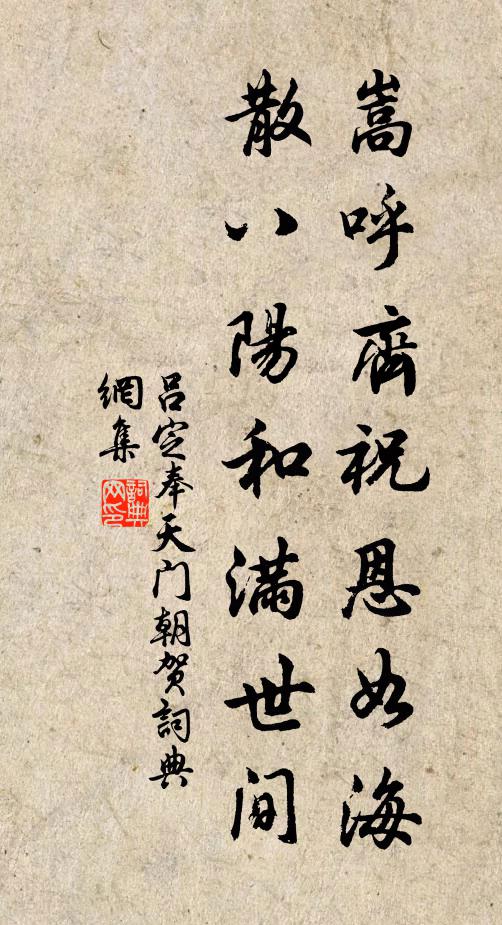 嵩呼齊祝恩如海
散八陽和滿世間
吕定奉天门朝贺詞典
網集
詞典
网印